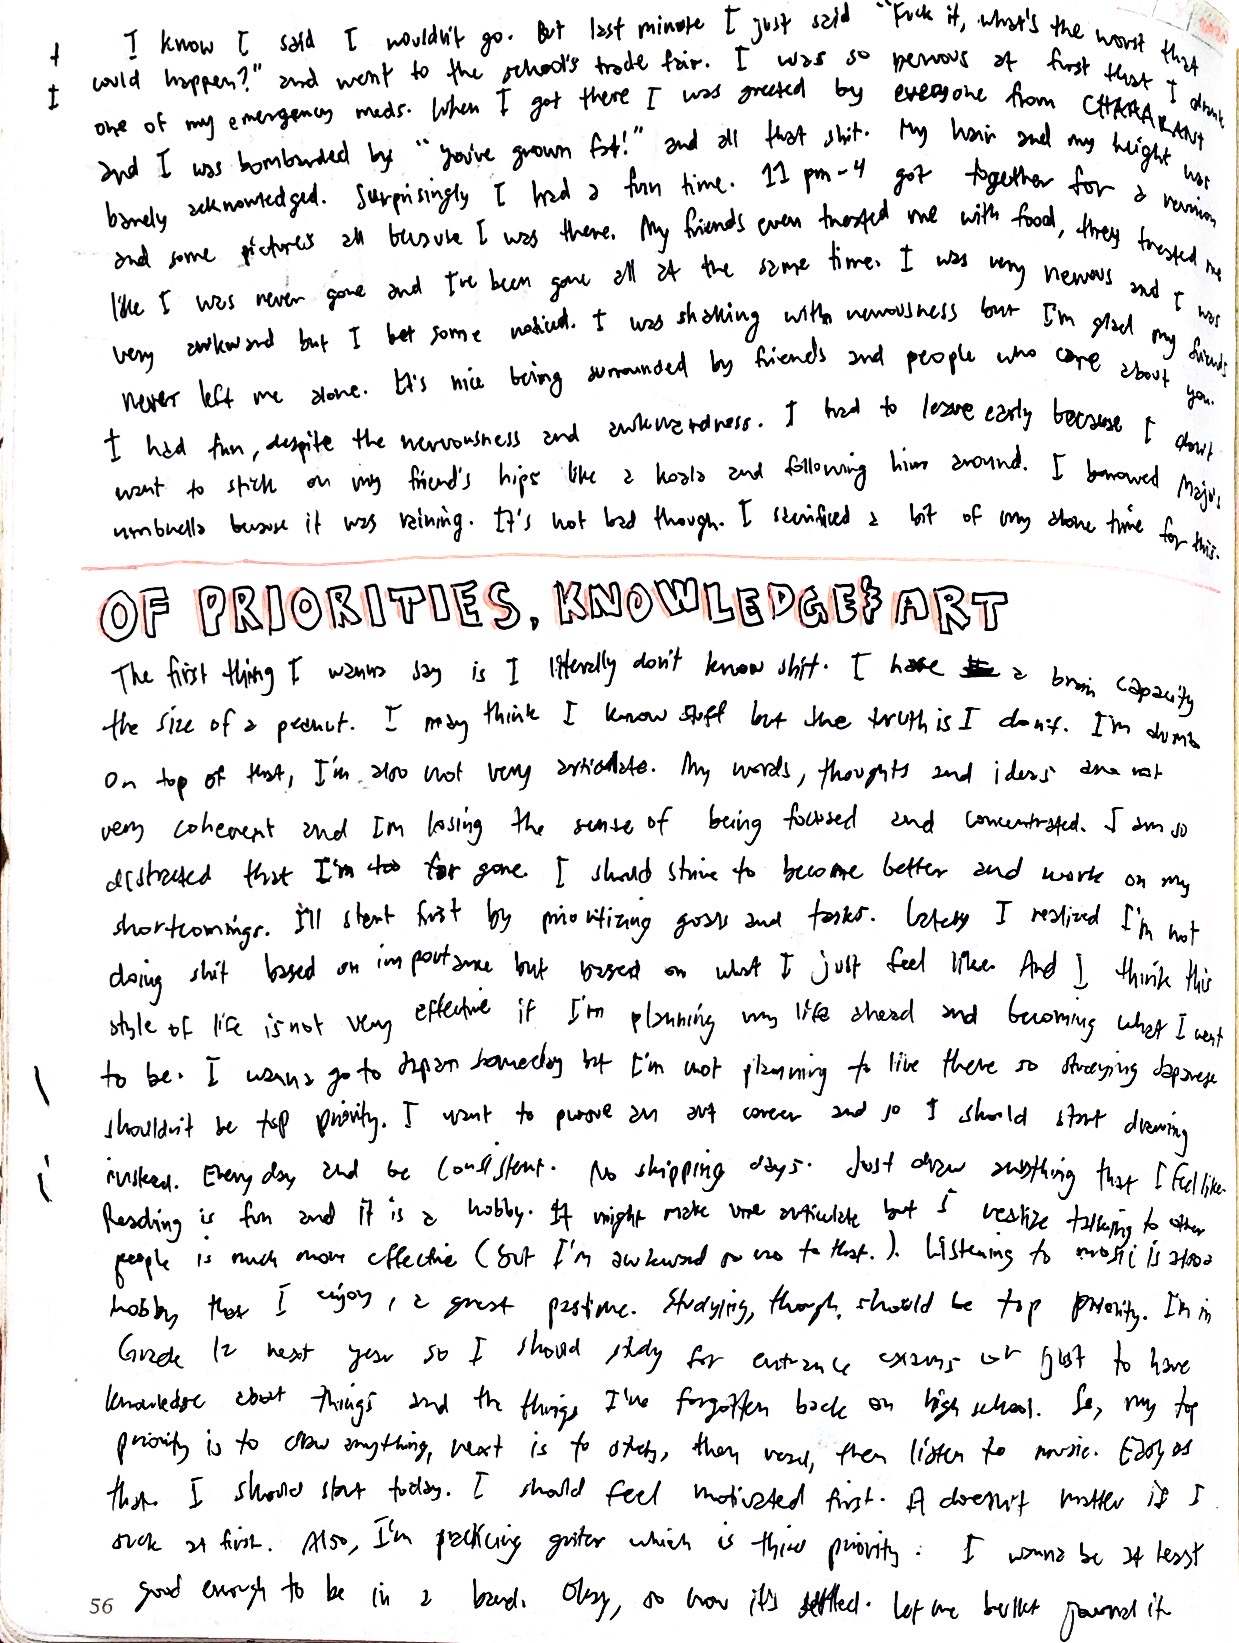 I know I said I wouldn't go. But last minute I just said "Fuck it, what's the worst that
could happen?" and went to the school's trade fair. I was so nervous at first that I drank
one of my emergency meds. When I got there I was greeted by everyone from
and I was bombarded by "you've grown fat!" and all that shit. My hair and my height was
barely acknowledged. Surprisingly I had a fun time. 11 pm-4 got together for a reunion
and some pictures all because I was there. My friends even treated me with food, they treated me
like I was never gone and I've been gone all at the same time. I was very nervous and I was
very awkward but I bet some noticed. I was shaking with nervousness but I'm glad my friends
never left me alone. It's nice being surrounded by friends and people who care about you.
I had fun, despite the nervousness and awkwardness. I had to leave early because I don't
want to stick on my friend's hips like a koala and following him around. I borrowed Maju's
umbrella because it was raining. It's not bad though. I sacrificed a bit of my alone time for this.
OF PRIORITIES, KNOWLEDGE & ART
The first thing I wanna say is I literally don't know shit. I have a brain capacity
the size of a peanut. I may think I know stuff but the truth is I don't. I'm dumb
On top of that, I'm also not very articulate. My words, thoughts and ideas are not
very coherent and I'm losing the sense of being focused and concentrated. I am so
distracted that I'm too far gone. I should strive to become better and work on my
shortcomings. I'll start first by prioritizing goals and tasks. Lately I realized I'm not
doing shit based on importance but based on what I just feel like. And I think this
style of life is not very effective if I'm planning my life ahead and becoming what I want
to be. I wanna go to Japan someday but I'm not planning to live there so studying Japanese
shouldn't be top priority. I want to pursue an art career and so I should start drawing
instead. Everyday and be consistent. No skipping days. Just draw anything that I feel like.
Reading is fun and it is a hobby. It might make me articulate but I realize talking to other
people is much more effective (but I'm awkward so no to that.). Listening to music is also a
hobby that I enjoy, a great pastime. Studying, though, should be top priority. I'm in
Grade 12 next year so I should study for entrance exams or just to have
knowledge about things and the things I've forgotten back on high school. So, my top
priority is to draw anything, next is to study, then read, then listen to music. Easy as
that. I should start today. I should feel motivated first. It doesn't matter if I
suck at first. Also, I'm practicing guitar which is third priority. I wanna be at least
good enough to be in a band. Okay, so now it's settled. Let me bullet journal it
56